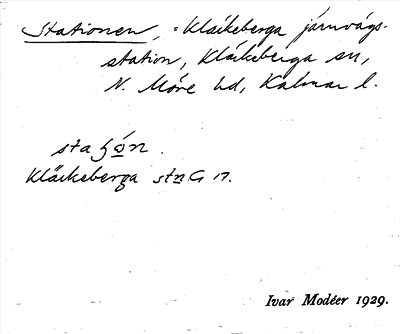 Stationen, = Kläckeberga järnvägs-
station, Kläckeberga sn,
N. Möre hd, Kalmar l.
staʃōn.
Kläckeberga stn G 17.
Ivar Modéer 1929.